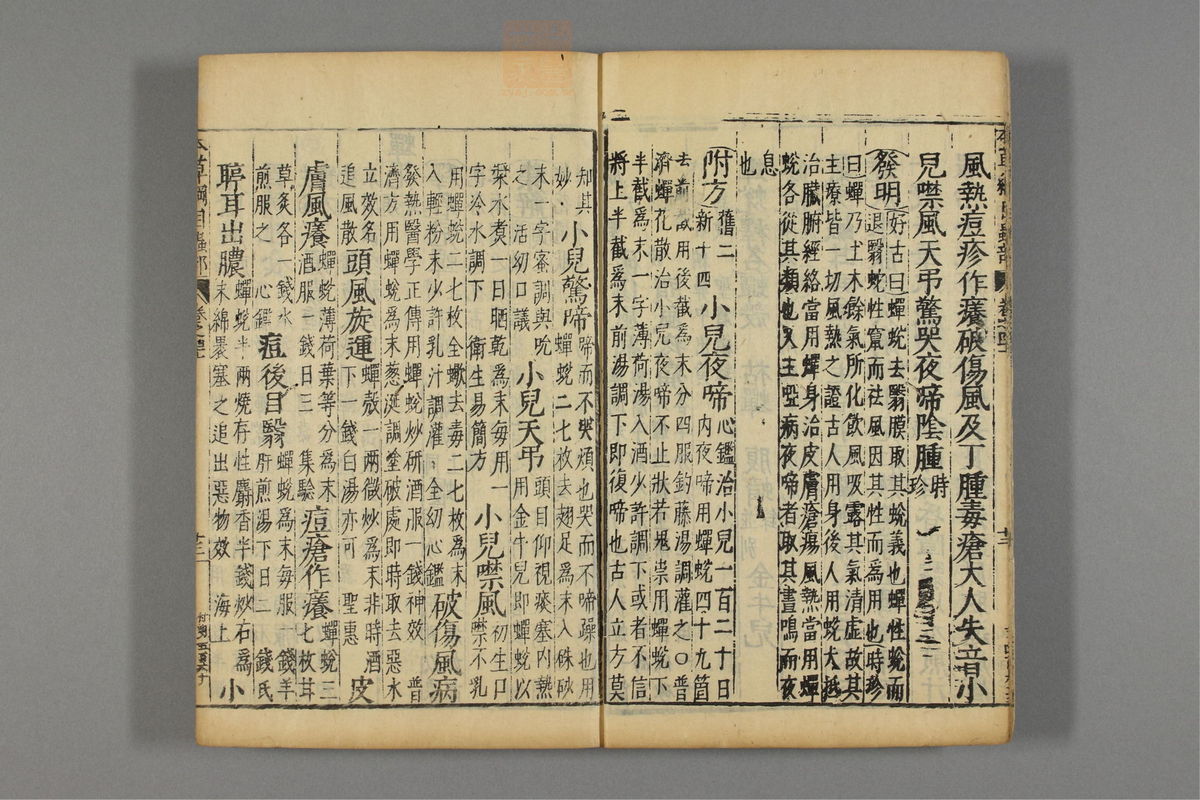 本草綱目蟲部 卷之四十一 十二
風熱痘疹作癢破傷風及丁腫毒瘡大人失音小
兒噤風天吊驚哭夜啼陰腫時珍
發明好古曰蟬蛻去翳膜取其蛻義也蟬性蛻而
退翳蛇性竄而祛風因其性而為用也時珍
曰蟬乃土木餘氣所化飲風吸露其氣清虛故其
主療皆一切風熱之證古人用身後人用蛻大抵
治臟腑經絡當用蟬身治皮膚瘡瘍風熱當用蟬
蛻各從其類也又主啞病夜啼者取其晝鳴而夜
息也
附方舊二新十四小兒夜啼心鑑治小兒一百二十日
內夜啼用蟬蛻四十九箇
去前截用後截為末分四服釣藤湯調灌之○普
濟蟬花散治小兒夜啼不止狀若鬼祟用蟬蛻下
半截為末一字薄荷湯入酒少許調下或者不信
將上半截爲末前湯調下即復啼也古人立方莫
知其妙小兒驚啼啼而不哭煩也哭而不啼躁也用
蟬蛻二七枚去翅足為末入硃砂
末一字蜜調與吮之活幼口議小兒天吊頭目仰視痰塞內熱
用金牛兒即蟬蛻以
漿水煮一日晒乾為末每用一字冷水調下衛生易簡方小兒噤風初生口噤不乳
用蟬蛻二七枚全蠍去毒二七枚為末
入輕粉末少許乳汁調灌全幼心鑑破傷風病
發熱醫學正傳用蟬蛻炒研酒服一錢神效普
濟方用蟬蛻為末葱涎調塗破處即時取去惡水
立效名追風散頭風旋運蟬殼一兩微炒為末非時酒
下一錢白湯亦可聖惠皮
膚風癢蟬蛻薄荷葉等分為末酒服一錢日三集驗痘瘡作癢蟬蛻三七枚甘
草炙各一錢水煎服之心鑑痘後目翳蟬蛻為末每服一錢羊肝煎湯下日二錢氏
聤耳出膿蟬蛻半兩燒存性麝香半錢炒右為
末綿裹塞之追出惡物效海上小
本草綱目蟲部 卷之四十一 十三